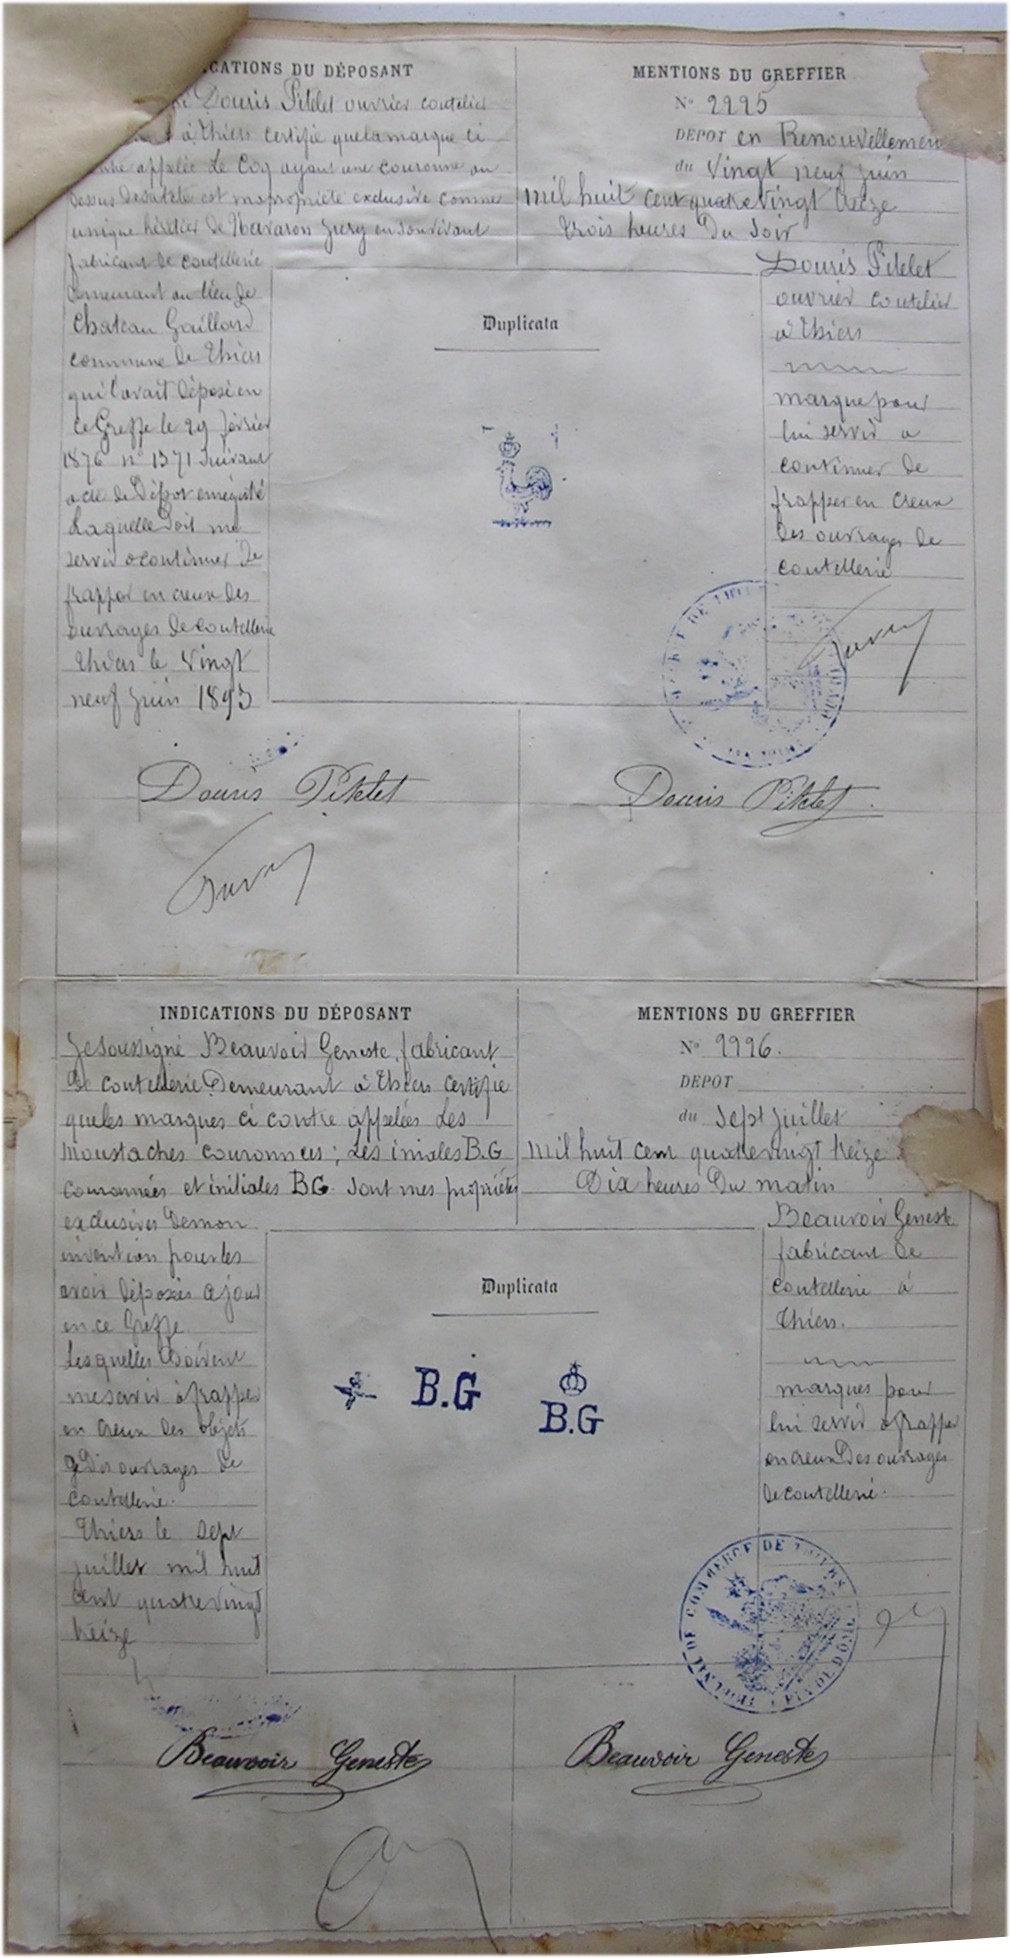 CATIONS DU DÉPOSANT
Douris Pitelet ouvrier coutelier
à Thiers certifie que la marque ci
appelée Le Coq ayant une couronne au
dessus de sa tete est ma propriété exclusive comme
unique héritier de Navaron Jury en son vivant
fabricant de coutellerie
demeurant au lieu de
Chateau Gaillard
commune de Thiers
qui l'avait déposé en
ce Greffe le 29 février
1876 n° 1371 suivant
acte de Dépot enregistré
Laquelle doit me
servir a continuer de
frapper en creux des
ouvrages de coutellerie
Thiers le Vingt
neuf Juin 1893
MENTIONS DU GREFFIER
N° 2225
DEPOT en Renouvellement
du Vingt neuf Juin
mil huit cent quatre Vingt treize
trois heures Du Soir
Douris Pitelet
ouvrier coutelier
à Thiers
marque pour
lui servir a
continuer de
frapper en creux
des ouvrages de
coutellerie
Duplicata
Douris Pitelet
Douris Pitelet
INDICATIONS DU DÉPOSANT
Je Soussigné Beauvoir Geneste, fabricant
de coutellerie Demeurant à Thiers certifie
que les marques ci contre appelées Les
Moustaches couronnées ; Les iniales B.G
couronnées et initiales B.G. Sont mes propriétés
exclusives de mon
invention pour les
avoir déposées ce jour
en ce Greffe.
Lesquelles Doivent
me servir à frapper
en creux des objets
de coutellerie.
Thiers le Sept
juillet mil huit
cent quatre vingt
treize
MENTIONS DU GREFFIER
N° 2226.
DEPOT
du Sept Juillet
Mil huit cent quatre vingt treize
Dix heures Du matin
Beauvoir Geneste
fabricant de
coutellerie à
Thiers.
marques pour
lui servir à frapper
en creux Des ouvrages
de coutellerie.
Duplicata
B.G
B.G
TRIBUNAL DE COMMERCE DE THIERS
PUY DE DOME
Beauvoir Geneste
Beauvoir Geneste